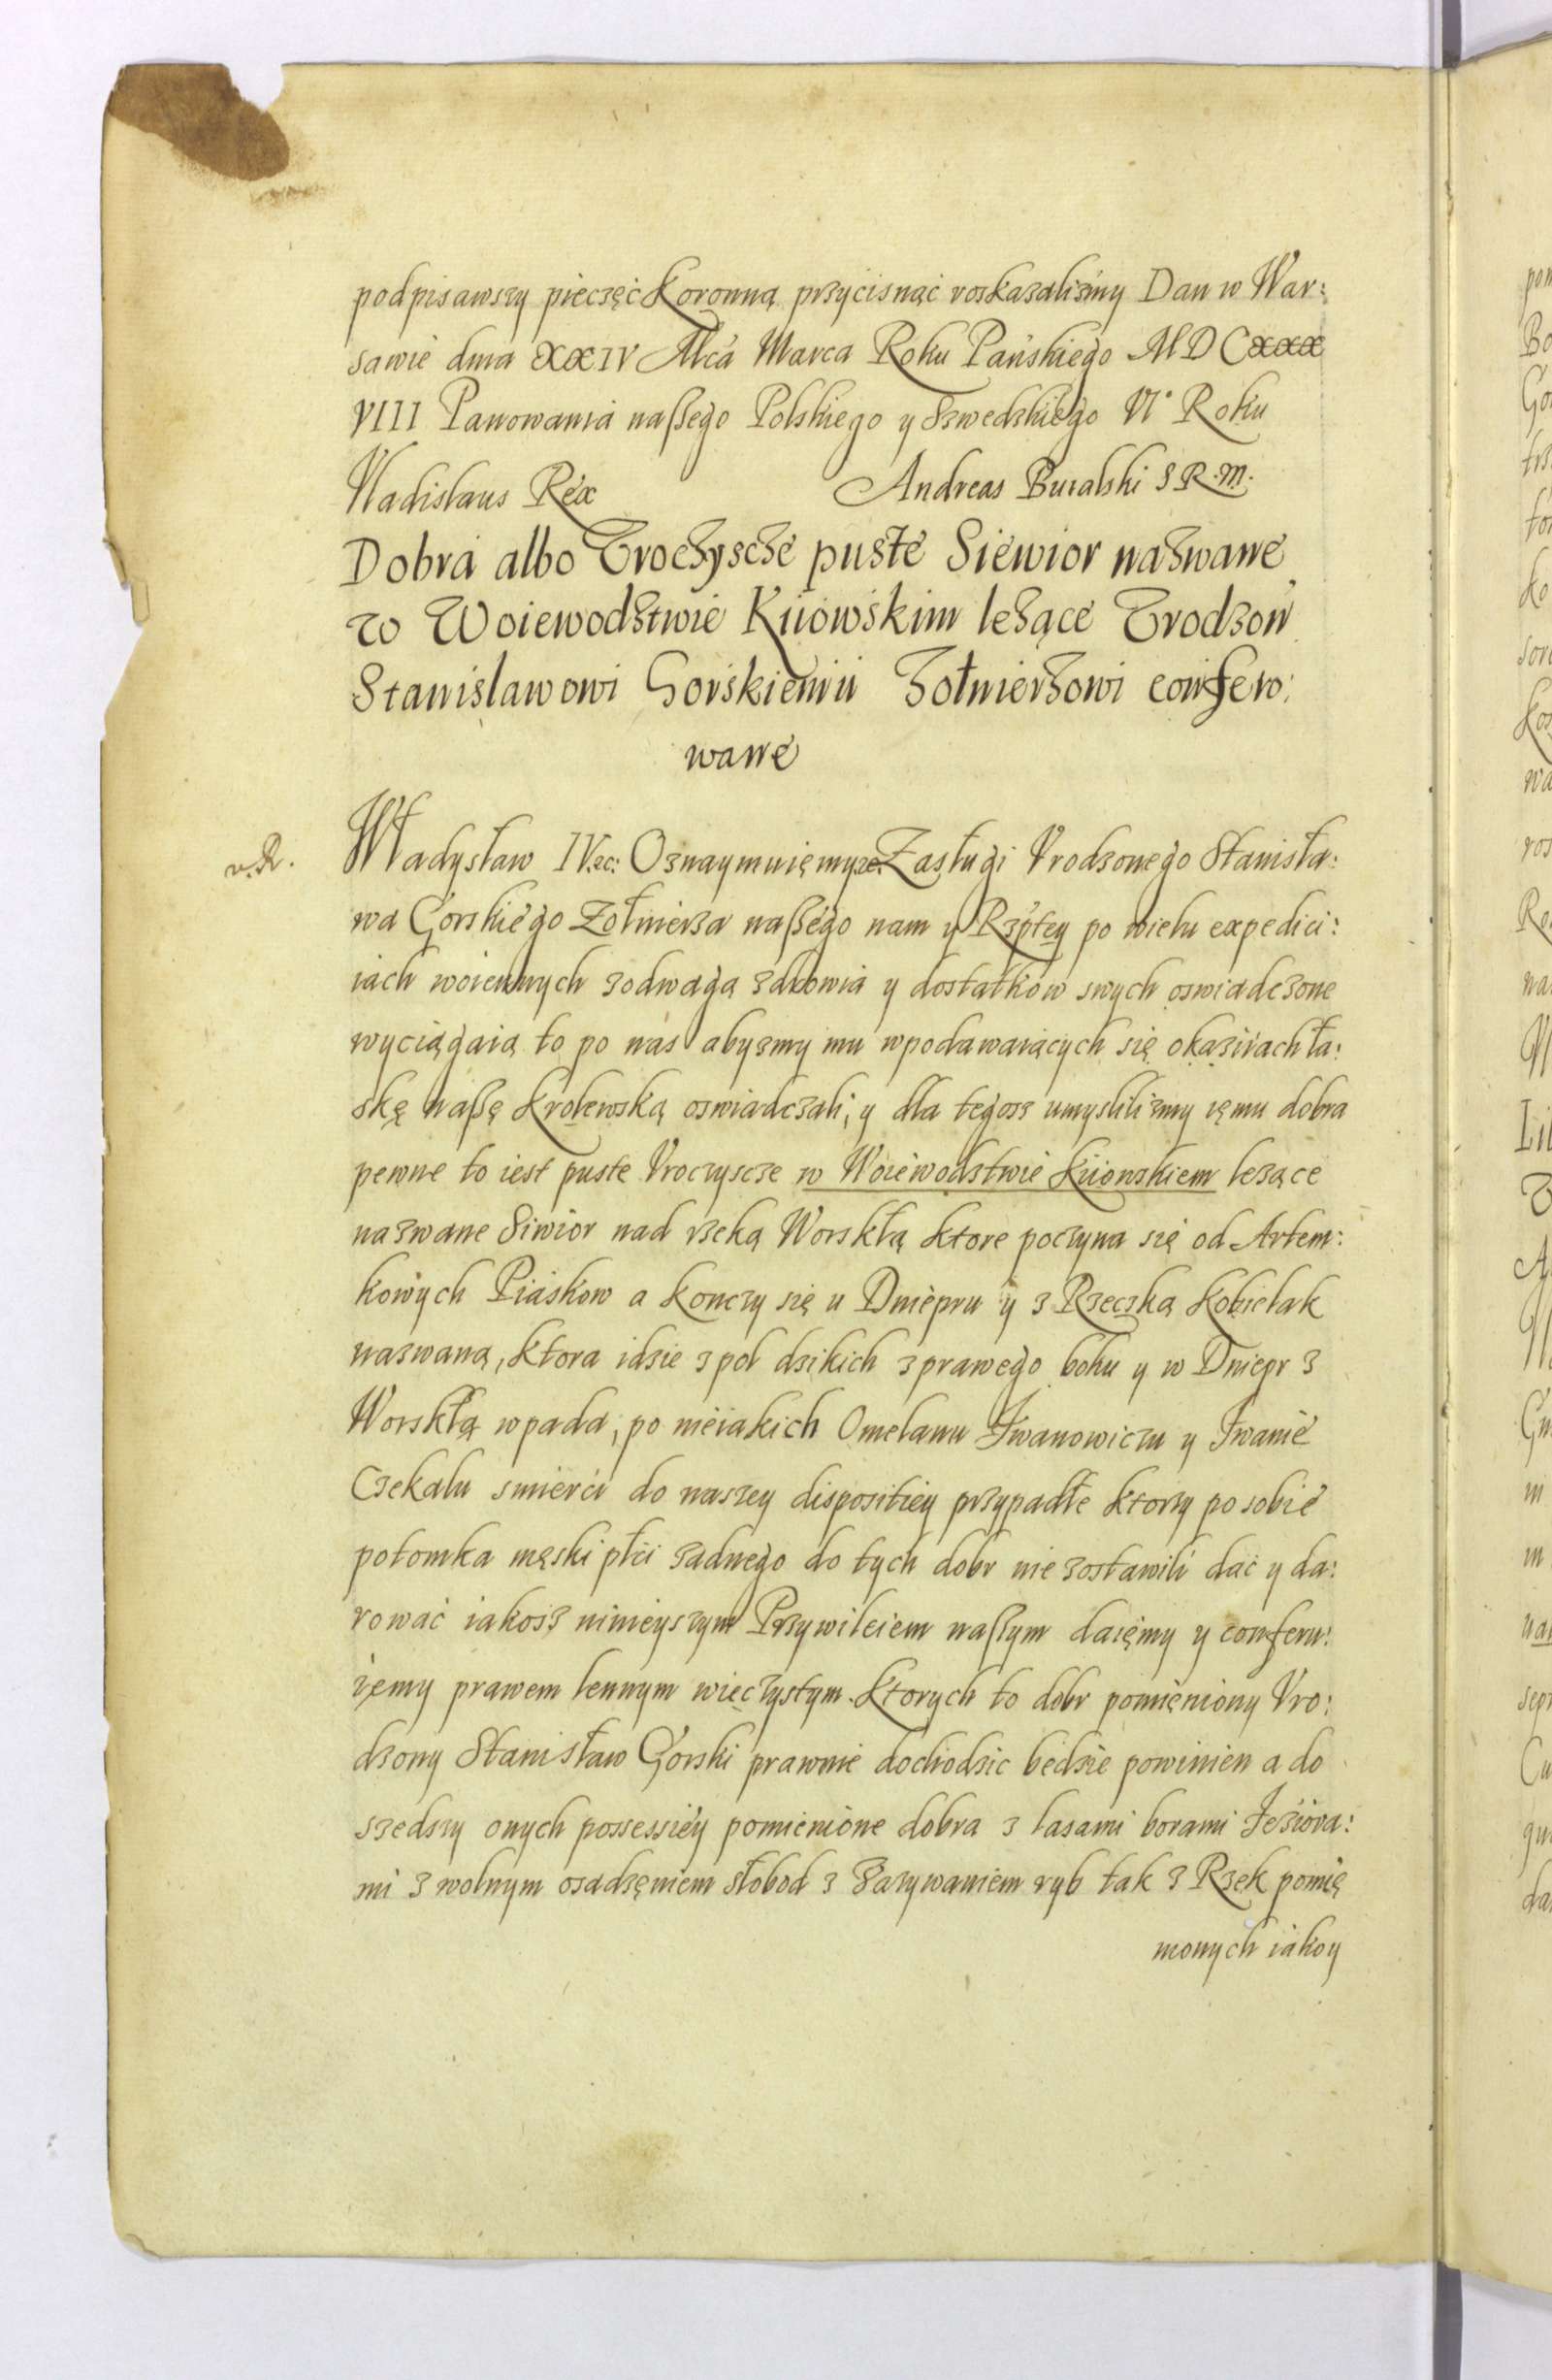 podpisawszy pieczęć Koronną przycisnąć roskazalismy Dan w War:
sawie dnia XXIV Mca Marca Roku Pańskiego MDCXXX
VIII Panowania naszego Polskiego y Szwedzkiego VI° Roku
Vladislaus Rex Andreas Buialski S R. M.
Dobra albo Vroczyscze puste Siewior nazwane
w Woiewodztwie Kiiowskim lezące Vrodzon
Stanislawowi Gorskiemu Zołnierzowi confero:
wane
v. R. Władysław IV. &c: Oznaymuięmy ze Zasługi Vrodzonego Stanisła:
wa Gorskiego Zołnierza naszego nam y Rzptey po wielu expedici:
iach woiennych z odwagą zdrowia y dostatkow swych oswiadczone
wyciągaią to po nas abysmy mu w podawaiących się okaziiach ła:
skę naszę Krolewską oswiadczali, y dla tegosz umyslilismy ięmu dobra
pewne to iest puste Vroczyscze w Woiewodztwie Kiiowskiem lezące
nazwane Siwior nad rzeką Worskłą ktore poczyna się od Artem:
kowych Piaskow a konczy się u Dniepru y z Rzeczką Kobielak
nazwaną, ktora idzie z pol dzikich z prawego boku y w Dniepr z
Worskłą wpada, po nieiakich Omelanu Iwanowiczu y Iwanie
Czekalu smierci do naszey dispositiey przypadłe ktorzy po sobie
potomka męski płci zadnego do tych dobr nie zostawili dać y da:
rować iakosz ninieyszym Przywileiem naszym daięmy y conferu:
iemy prawem lennym wieczystym. Ktorych to dobr pomięniony Vro:
dzony Stanisław Gorski prawnie dochodzic będzie powinien a do
szedszy onych possessiey pomienione dobra z lasami borami Jeziora:
mi z wolnym osadzęniem słobod z Zazywaniem ryb tak z Rzek pomię
nionych iako y